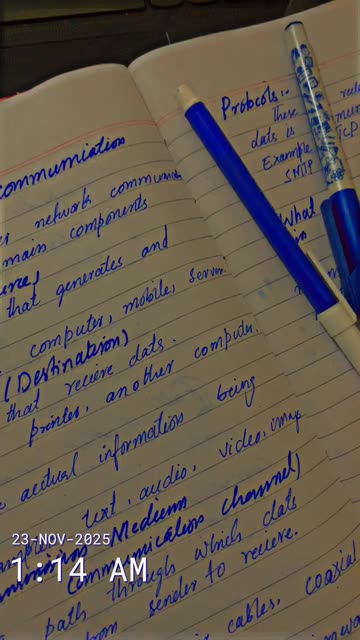 communication
network communication
main components
that generates and
computer, mobile, server.
(Destination)
that recieve dats.
printer, another computer.
actual information being
text, audio, video, imag
Medium
Communication channel)
path through which dats
from sender to recieve.
cables, coaxial
Protocols:-
These
dats is
Example
SMTP
TCP
What
23-NOV-2025
1:14 AM